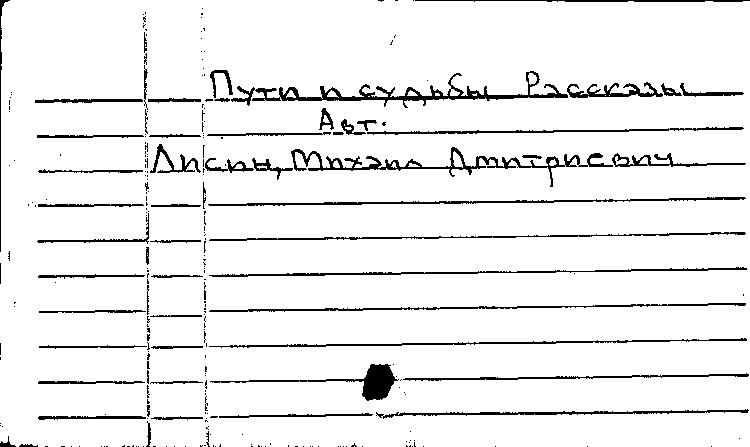 Пути и судьбы Рассказы
Авт.
Лисин, Михаил Дмитриевич